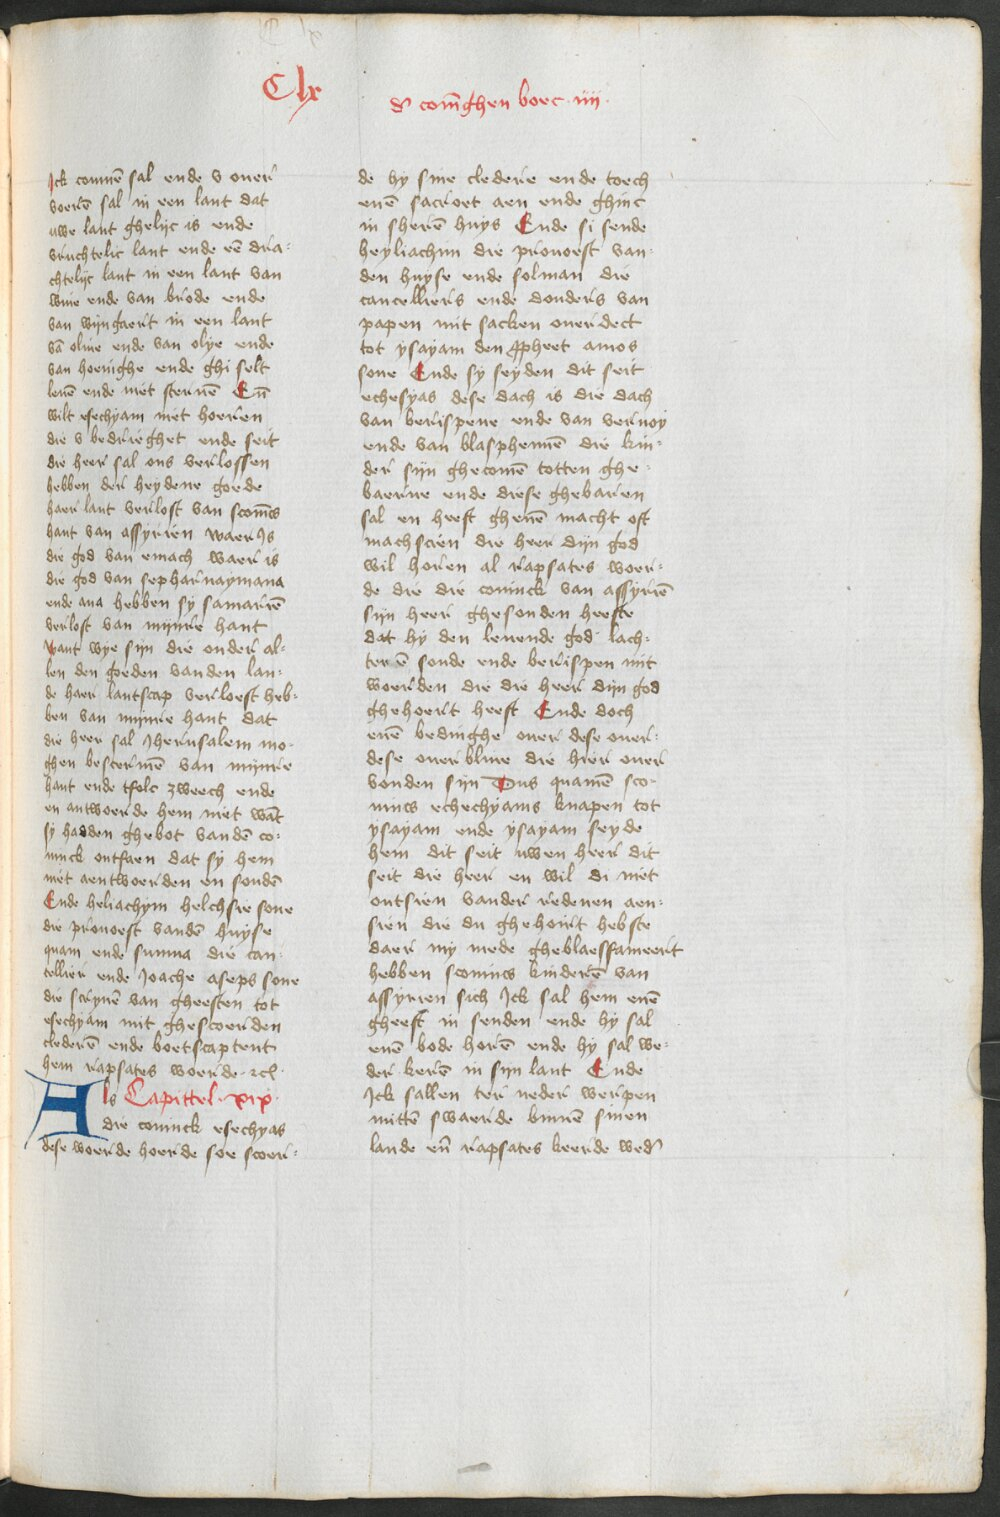 Clx
d' conīghen boec · iiij ·
Ick comē sal ende v ouer
voerē sal in een lant dat
uwe lant ghelijc is ende
vruchtelic lant ende eē dra-
chtelijc lant in een lant van
wine ende van brode ende
van wijngaert in een lant
vā oliue ende van olye ende
van hoenighe ende ghi selt
leuē ende niet steruē En̄
wilt esechyam niet hoeren
die v bedrieghet ende seit
die heer sal ons verlossen
hebben der heydene goede
haer lant verlost van sconīcs
hant van assyrien waer Is
die god van emach waer is
die god van sepharnaymana
ende aua hebben sy samariē
verlost van mijnre hant
want wye sijn die onder al-
len den goeden vanden lan-
de haer lantscap verloest heb-
ben van mijnre hant dat
die heer sal Jherusalem mo-
ghen bescermē van mijnre
hant ende tfolc zweech ende
en antwoerde hem niet wāt
sy hadden ghebot vandē co-
ninck ontfaen dat sy hem
niet aentwoerden en soudē
Ende heliachym helchsie sone
die prouoest vandē huyse
quam ende sunna die can-
cellier ende Joache aseps sone
die scrynē van gheesten tot
esechyam mit ghescoerden
clederē ende boetscaptent
hem rapsates woerde · rcl ·
Als Capittel · xix ·
die coninck esechyas
dese woerde hoerde soe scoer-
de hy sine cledere ende toech
enē sacroet aen ende ghinc
in sherē huys Ende si sende
heyliachim die prouoest van-
den huyse ende solman die
cancelliers ende donders van
papen mit sacken ouerdect
tot ysayam den ꝓpheet amos
sone Ende sy seyden dit seit
echesyas dese dach is die dach
van berispene ende van vernoy
ende van blasphemē die kin-
der sijn ghecomē totten ghe-
baerne ende diese ghebaren
sal en heeft ghenē macht oft
machscien die heer dijn god
wil horen al rapsates woer-
de die die coninck van assyriē
sijn heer ghesonden heefte
dat hy den leuende god lach-
terē soude ende berispen mit
woerden die die heer dijn god
ghehoert heeft Ende doch
enē bedinghe ouer dese ouer-
dese ouerbliue die hier ouer
vonden sijn Dus quamē sco-
nincs echechyams knapen tot
ysayam ende ysayam seyde
hem dit seit uwen heer dit
seit die heer en wil di niet
ontsien vander redenen aen-
sien die du ghehoirt hebste
daer my mede gheblaesfameert
hebben sconincs kinderē van
assyrien sich Ick sal hem enē
gheest in senden ende hy sal
enē bode horē ende hy sal we-
der kerē in sijn lant Ende
Ick sallen ter neder werpen
mittē swaerde binnē sinen
lande en̄ rapsates keerde wed'